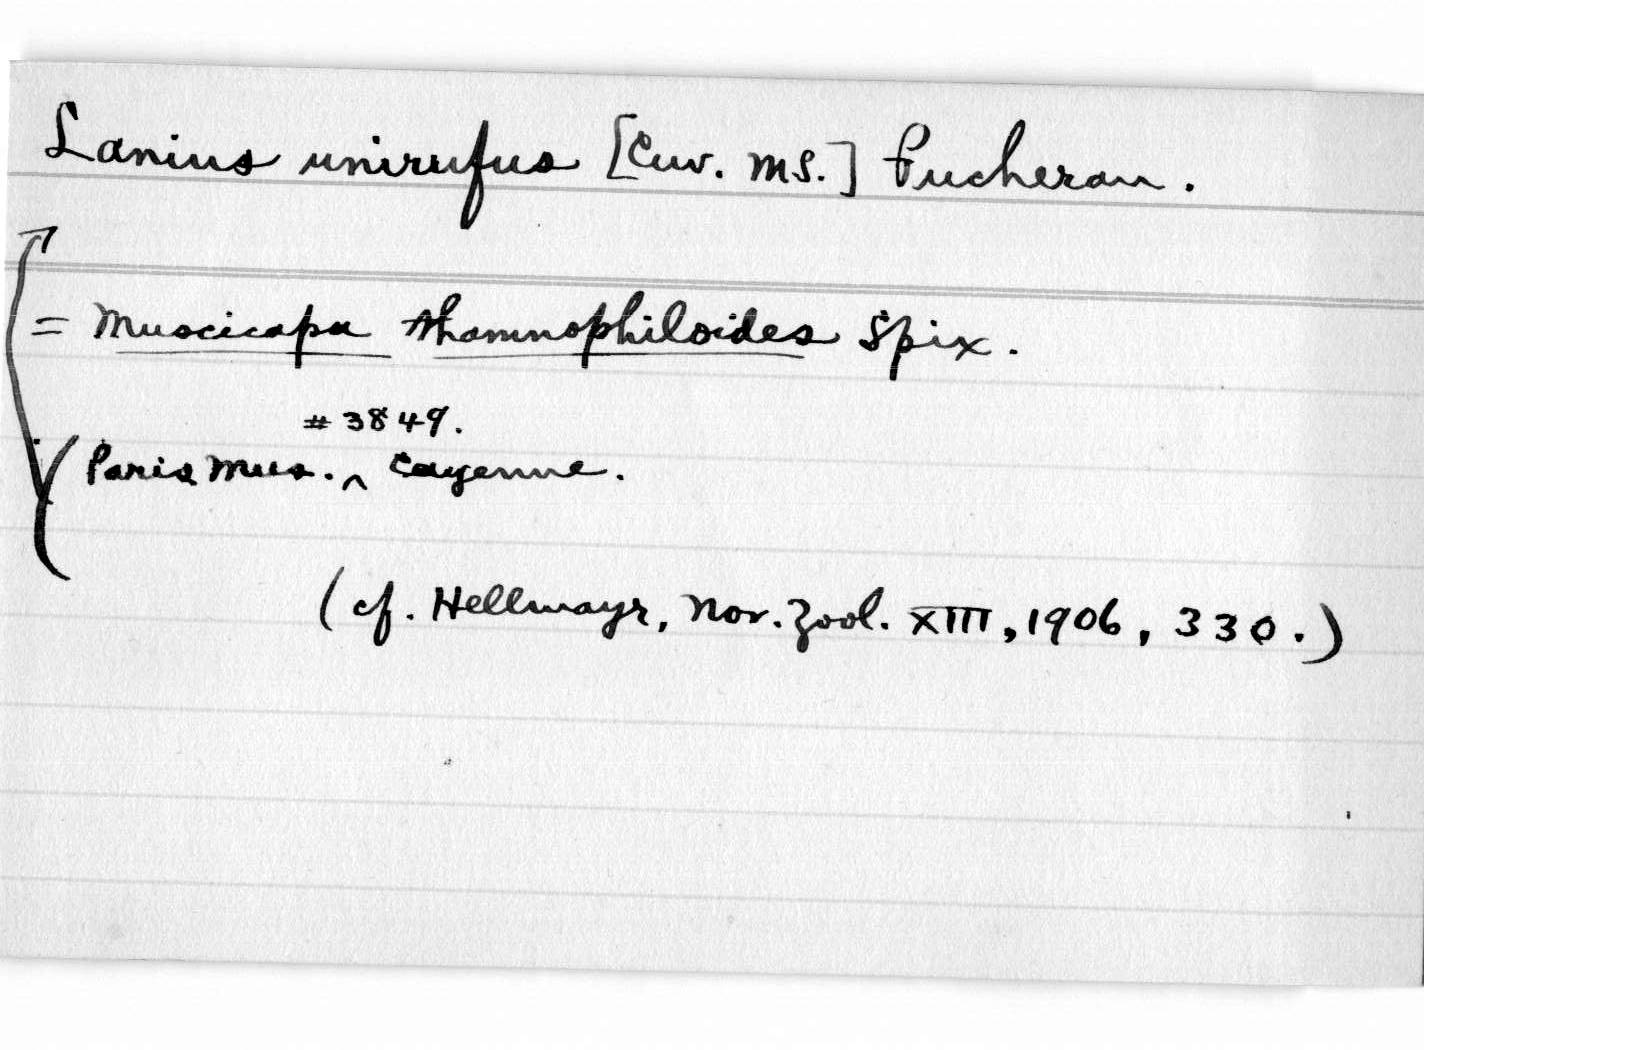 Lanius unirufus [Cuv. MS.] Pucheran.
= Muscicapa thamnophiloides Spix.
# 3849.
(Paris Mus. ^ Cayenne.
(cf. Hellmayr, Nov. Zool. XIII, 1906, 330.)